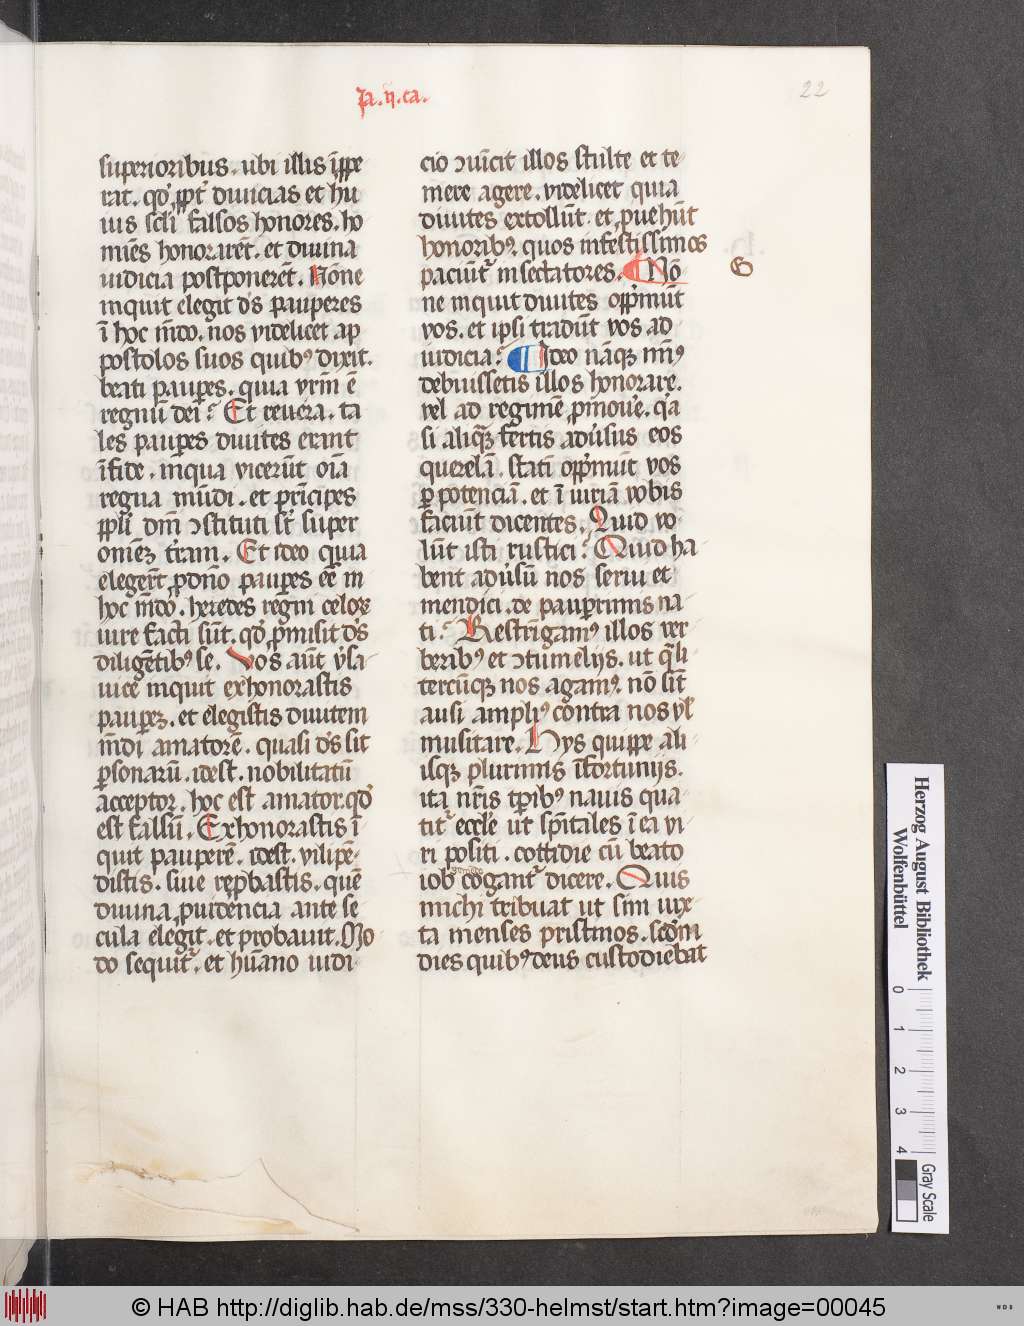 Ja. ij. ca.
22
superioribus. ubi illis īppe
rat. qd̛ ꝓpt̛ diuicias et hu
ius scl̄i falsos honores. ho
mīes honorarēt. et diuina
iudicia postponerēt. Nōne
inquit elegit d̄s pauperes
ī hoc mͦdo. nos videlicet ap
postolos suos quibꝰ dixit.
beati paupes. quia vrm̄ ē
regnū dei? Et reuera. ta
les paupes diuites erant
ī fide. inqua vicerūt oīa
regna mūdi. et prīcipes
ppl̄i dm̄ ꝯstituti st̄ super
omēꝫ tr̄am. Et ideo quia
elegerūt ꝓ dn̄o paupes eē in
hoc mͦdo. heredes regni celoꝝ
iure facti sūt. qd̛ ꝓmisit d̄s
diligētibꝰ se. Vos aūt vs̄a
uice inquit exhonorastis
paupeꝫ. et elegistis diuitem
mͦdi amatorē. quasi d̄s sit
ꝑsonarū. idest. nobilitatū
acceptor. hoc est amator. qd̛
est falsū. Exhonorastis ī
quit pauperē. idest. vilipē
distis. siue reꝓbastis. quē
diuina ꝓuidencia ante se
cula elegit. et probauit. Mo
do sequit̛. et hūano iudi
cio ꝯuīcit illos stulte et te
mere agere. videlicet quia
diuites extollūt. et ꝓuehūt
honoribꝰ. quos infestissimos
paciūt̛ insectatores. Nō
G
ne inquit diuites oppͥmūt
vos. et ipsi tradūt vos ad
iudicia? Ideo nāqꝫ minꝰ
debuissetis illos honorare.
vel ad regimē ꝓmoue̛. qͥa
si aliqͣꝫ fertis adūsus eos
querelā. statī oppͥmūt vos
ꝑ potenciā. et ī iuriā vobis
faciūt dicentes. Quid vo
lūt isti rustici? Quid ha
bent adūsū nos serui et
mendici. de pauprimis na
ti? Restrīgamꝰ illos ver
beribꝰ et ꝯtumelijs. ut qͣli
tercūqꝫ nos agamꝰ. nō sīt
ausi ampliꝰ contra nos vl̛
musitare. Hys quippe ali
isqꝫ plurimis īfortunijs.
ita nr̄is tp̄ribꝰ nauis qua
tit̛ eccl̄e ut sp̄itales ī ea vi
ri positi. cottidie cū beato
iob cogant̛ dicere. Quis
michi tribuat ut sim iuxͣ
ta menses pristinos. scdm
dies quibꝰ deus custodiebat
Herzog August Bibliothek
Wolfenbüttel
0 1 2 3 4
Gray Scale
© HAB http://diglib.hab.de/mss/330-helmst/start.htm?image=00045